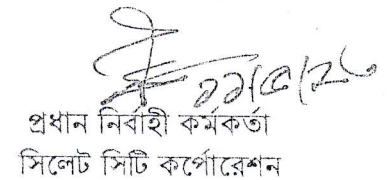 প্রধান নির্বাহী কর্মকর্তা
সিলেট সিটি কর্পোরেশন